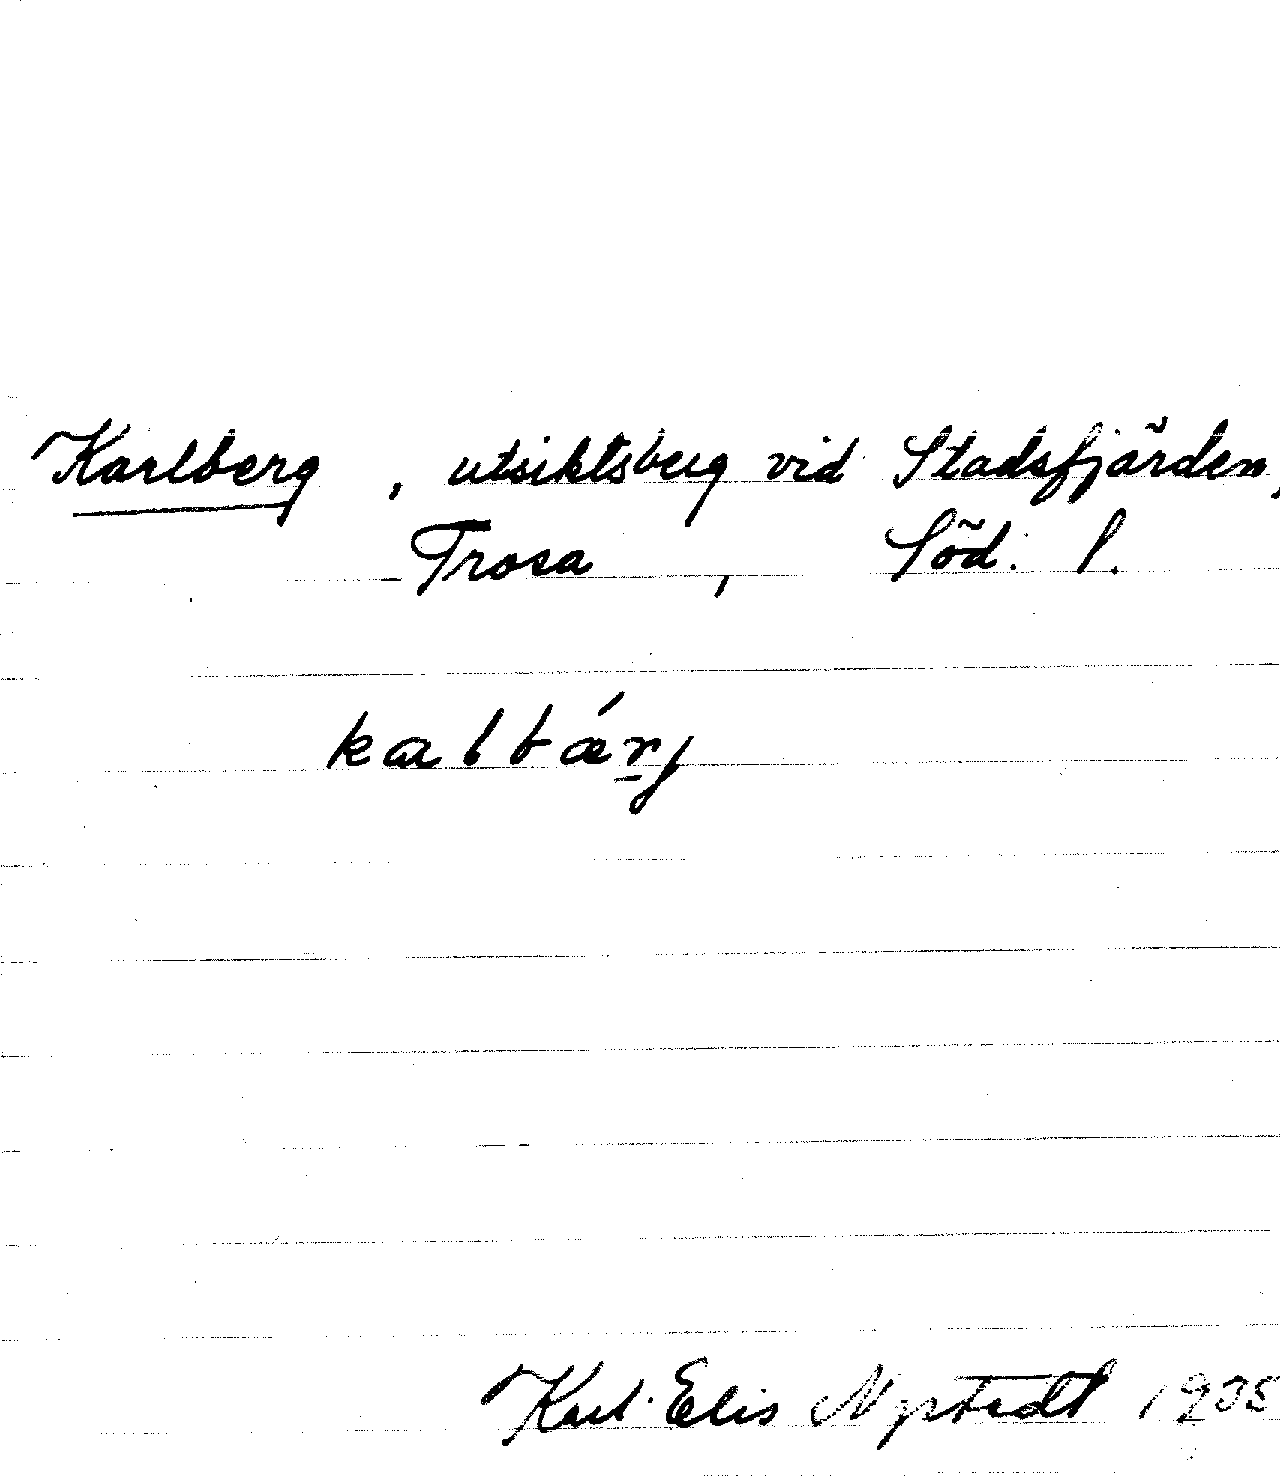 Karlberg, utsiktsberg vid Stadsfjärden,
Trosa, Söd. l.
kalbǽrj
Karl-Elis Nystedt 1935